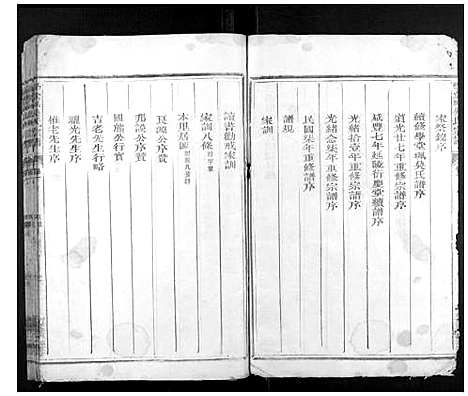 家祭銘序
續修學堂珮吳氏譜序
道光廿七年重修宗譜序
咸豐七年延陵衍慶堂續譜序
光緒拾壹年重修宗譜序
光緒念柒年重修宗譜序
民國柒年重修譜序
譜規
家訓
讀書勸戒家訓
家訓八條
本里居圖
良源公序贊
邦謨公序贊
國熊公行實
吉老先生行略
耀光先生序
惟老先生序